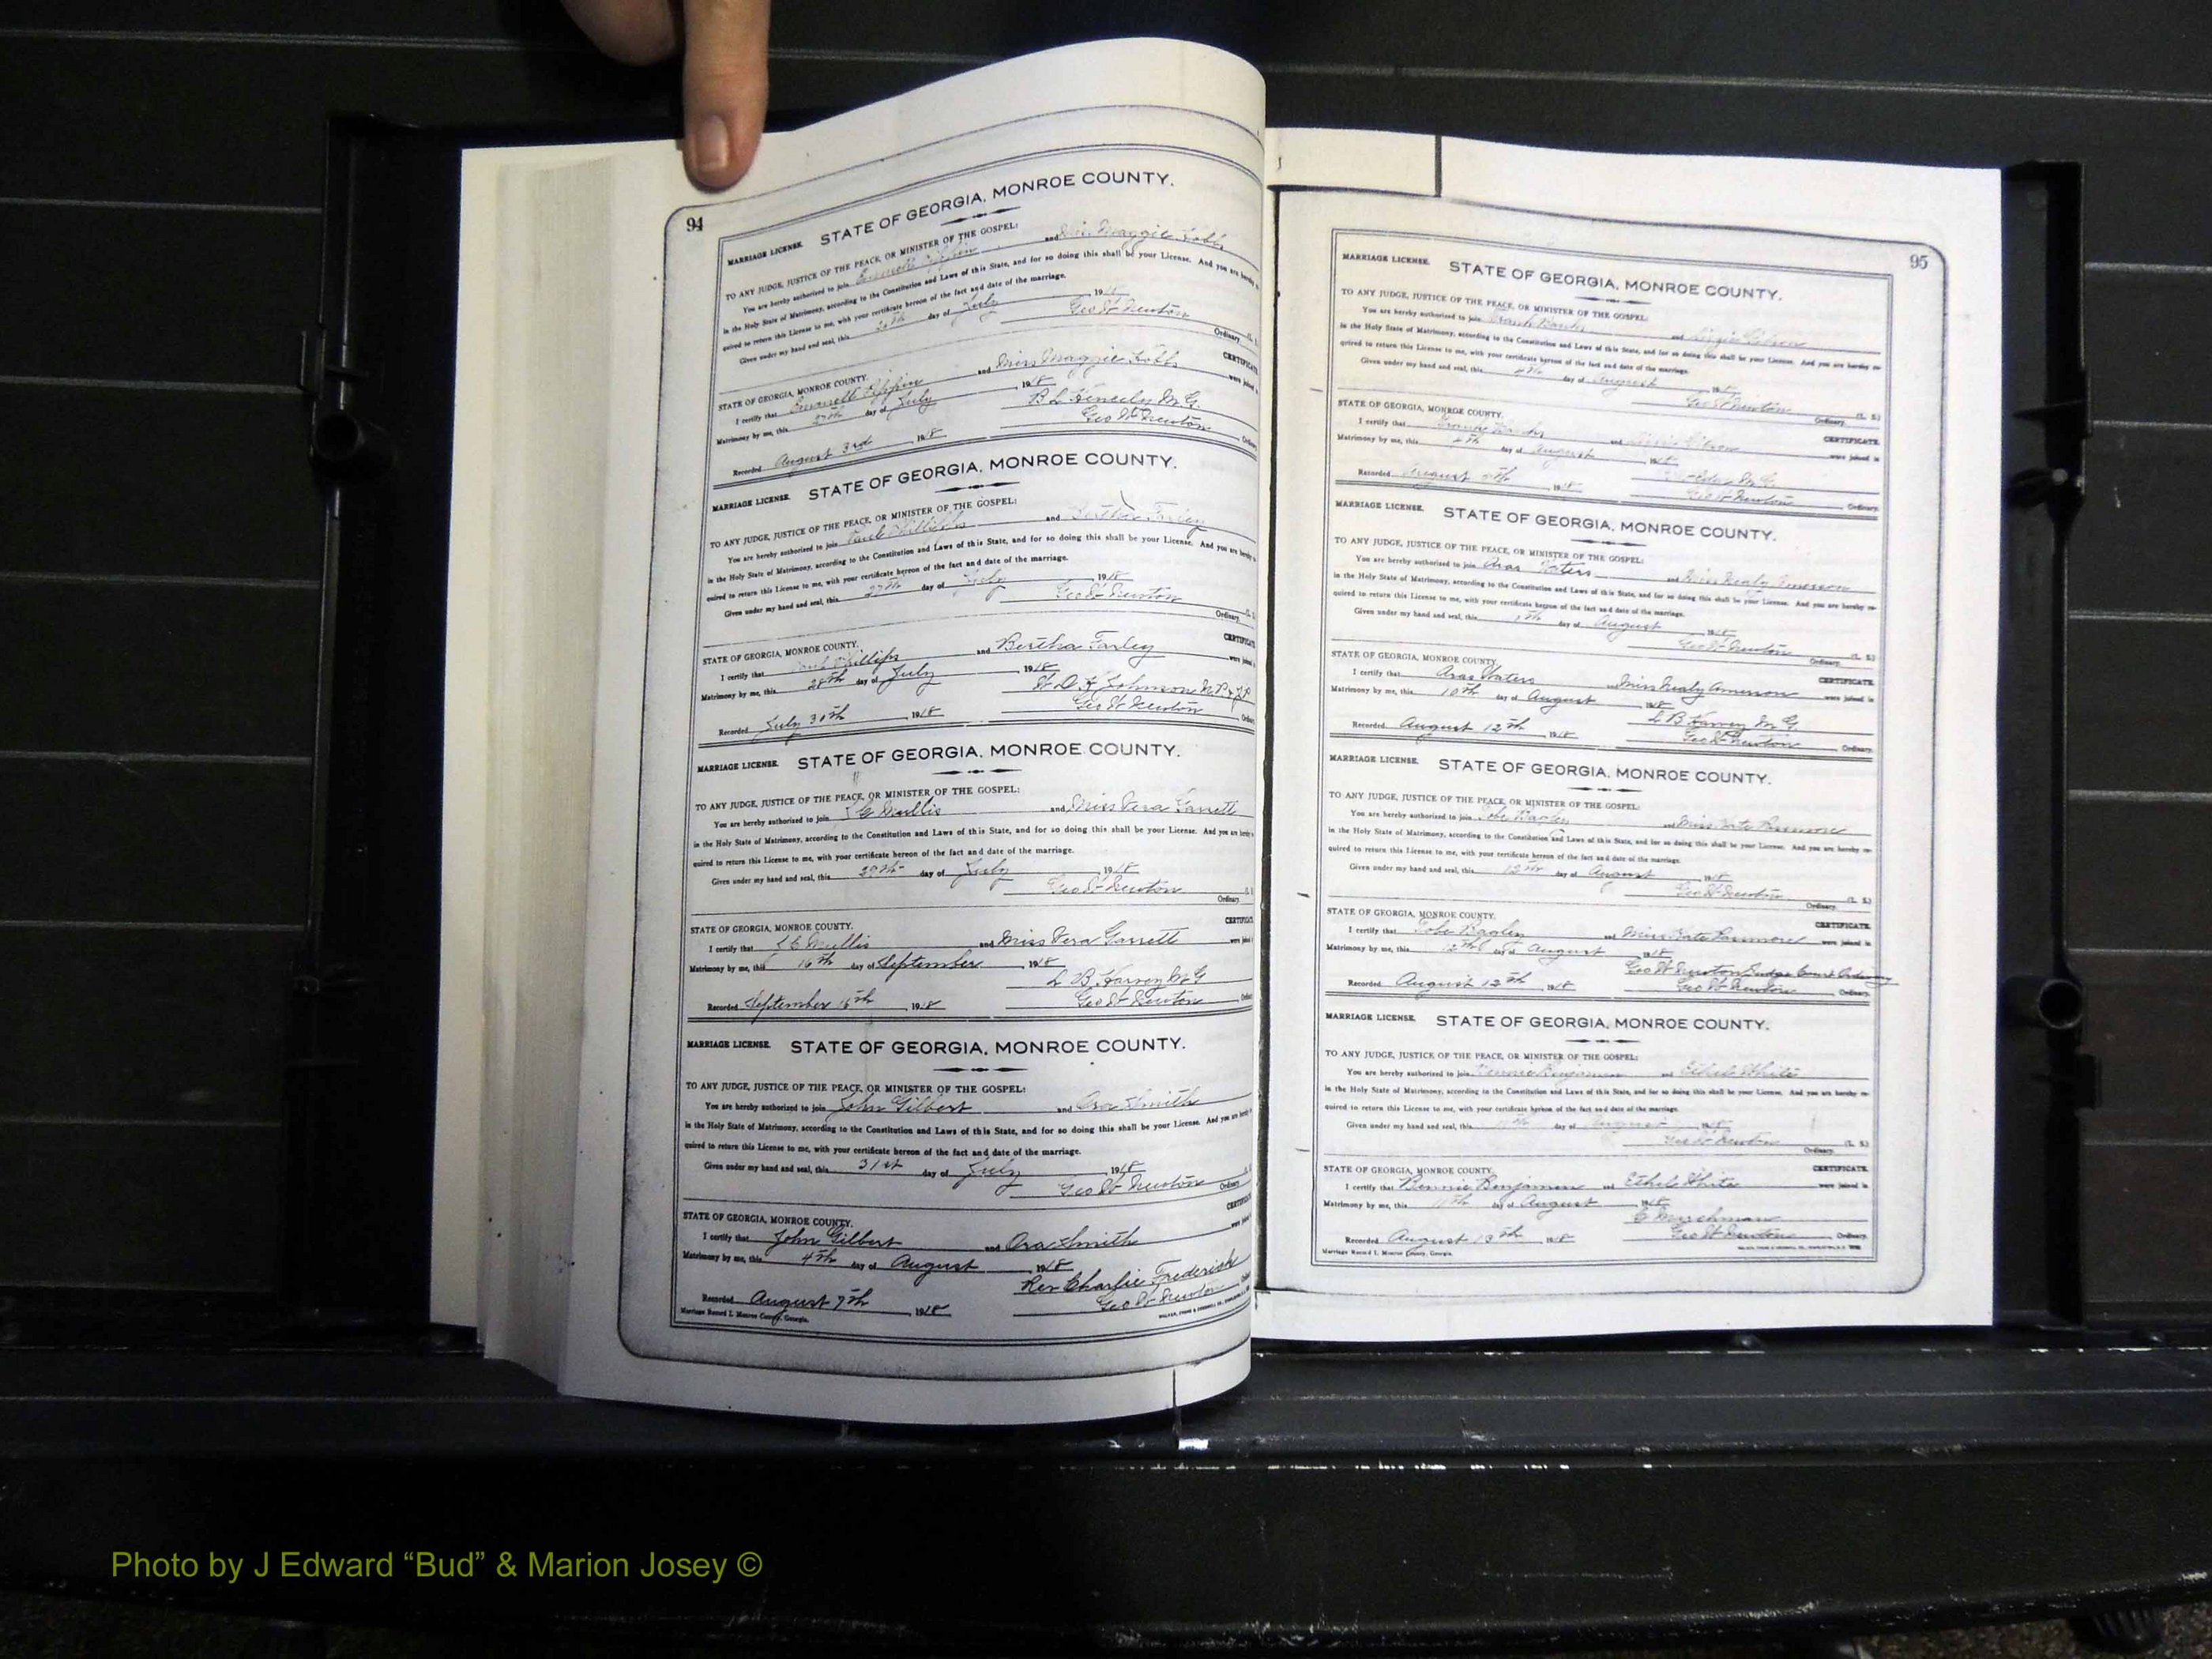 94
MARRIAGE LICENSE. STATE OF GEORGIA, MONROE COUNTY.
TO ANY JUDGE, JUSTICE OF THE PEACE, OR MINISTER OF THE GOSPEL:
You are hereby authorized to join and Miss Maggie
in the Holy State of Matrimony, according to the Constitution and Laws of this State, and for so doing this shall be your License. And you are hereby
quired to return this License to me, with your certificate hereon of the fact and date of the marriage.
Given under my hand and seal, this 26th day of July 1918
Geo W Newton
Ordinary.
STATE OF GEORGIA, MONROE COUNTY. CERTIFICATE
I certify that and Miss Maggie were joined
Matrimony by me, this 27th day of July 1918
B L M.G.
Recorded August 3rd 1918 Geo W Newton
MARRIAGE LICENSE. STATE OF GEORGIA, MONROE COUNTY.
TO ANY JUDGE, JUSTICE OF THE PEACE, OR MINISTER OF THE GOSPEL:
You are hereby authorized to join Paul Phillips and Bertha Farley
in the Holy State of Matrimony, according to the Constitution and Laws of this State, and for so doing this shall be your License. And you are hereby
quired to return this License to me, with your certificate hereon of the fact and date of the marriage.
Given under my hand and seal, this 27th day of July 1918
Geo W Newton
Ordinary.
STATE OF GEORGIA, MONROE COUNTY. CERTIFICATE
I certify that Paul Phillips and Bertha Farley were joined
Matrimony by me, this 28th day of July 1918
Johnson N.P. & J.P.
Recorded July 30th 1918 Geo W Newton
MARRIAGE LICENSE. STATE OF GEORGIA, MONROE COUNTY.
TO ANY JUDGE, JUSTICE OF THE PEACE, OR MINISTER OF THE GOSPEL:
You are hereby authorized to join Mullis and Miss Vera Garrett
in the Holy State of Matrimony, according to the Constitution and Laws of this State, and for so doing this shall be your License. And you are hereby
quired to return this License to me, with your certificate hereon of the fact and date of the marriage.
Given under my hand and seal, this 29th day of July 1918
Geo W Newton
Ordinary.
STATE OF GEORGIA, MONROE COUNTY. CERTIFICATE
I certify that Mullis and Miss Vera Garrett were joined
Matrimony by me, this 16th day of September 1918
L B Harvey M G
Recorded September 16th 1918 Geo W Newton
MARRIAGE LICENSE. STATE OF GEORGIA, MONROE COUNTY.
TO ANY JUDGE, JUSTICE OF THE PEACE, OR MINISTER OF THE GOSPEL:
You are hereby authorized to join John Gilbert and Ora Smith
in the Holy State of Matrimony, according to the Constitution and Laws of this State, and for so doing this shall be your License. And you are hereby
quired to return this License to me, with your certificate hereon of the fact and date of the marriage.
Given under my hand and seal, this 31st day of July 1918
Geo W Newton Ordinary.
STATE OF GEORGIA, MONROE COUNTY. CERTIFICATE
I certify that John Gilbert and Ora Smith were joined
Matrimony by me, this 4th day of August 1918
Rev Charlie Frederick
Recorded August 7th 1918 Geo W Newton
Marriage Record I. Monroe County, Georgia.
95
MARRIAGE LICENSE. STATE OF GEORGIA, MONROE COUNTY.
TO ANY JUDGE, JUSTICE OF THE PEACE, OR MINISTER OF THE GOSPEL:
You are hereby authorized to join and
in the Holy State of Matrimony, according to the Constitution and Laws of this State, and for so doing this shall be your License. And you are hereby re-
quired to return this License to me, with your certificate hereon of the fact and date of the marriage.
Given under my hand and seal, this day of August 1918
Geo W Newton (L. S.)
Ordinary.
STATE OF GEORGIA, MONROE COUNTY. CERTIFICATE.
I certify that and were joined in
Matrimony by me, this 4th day of August 1918
M.G.
Recorded August 1918 Geo W Newton Ordinary.
MARRIAGE LICENSE. STATE OF GEORGIA, MONROE COUNTY.
TO ANY JUDGE, JUSTICE OF THE PEACE, OR MINISTER OF THE GOSPEL:
You are hereby authorized to join Aras Waters and Miss Nealy Amerson
in the Holy State of Matrimony, according to the Constitution and Laws of this State, and for so doing this shall be your License. And you are hereby re-
quired to return this License to me, with your certificate hereon of the fact and date of the marriage.
Given under my hand and seal, this day of August 1918
Geo W Newton (L. S.)
Ordinary.
STATE OF GEORGIA, MONROE COUNTY. CERTIFICATE.
I certify that Aras Waters and Miss Nealy Amerson were joined in
Matrimony by me, this 10th day of August 1918
L B Harvey M G
Recorded August 12th 1918 Geo W Newton Ordinary.
MARRIAGE LICENSE. STATE OF GEORGIA, MONROE COUNTY.
TO ANY JUDGE, JUSTICE OF THE PEACE, OR MINISTER OF THE GOSPEL:
You are hereby authorized to join Tobe and Miss Kate
in the Holy State of Matrimony, according to the Constitution and Laws of this State, and for so doing this shall be your License. And you are hereby re-
quired to return this License to me, with your certificate hereon of the fact and date of the marriage.
Given under my hand and seal, this 12th day of August 1918
Geo W Newton (L. S.)
Ordinary.
STATE OF GEORGIA, MONROE COUNTY. CERTIFICATE.
I certify that Tobe and Miss Kate were joined in
Matrimony by me, this 12th day of August 1918
Geo W Newton Judge Court Ordinary
Recorded August 12th 1918 Geo W Newton Ordinary.
MARRIAGE LICENSE. STATE OF GEORGIA, MONROE COUNTY.
TO ANY JUDGE, JUSTICE OF THE PEACE, OR MINISTER OF THE GOSPEL:
You are hereby authorized to join Bennie Benjamin and Ethel White
in the Holy State of Matrimony, according to the Constitution and Laws of this State, and for so doing this shall be your License. And you are hereby re-
quired to return this License to me, with your certificate hereon of the fact and date of the marriage.
Given under my hand and seal, this day of August 1918
Geo W Newton (L. S.)
Ordinary.
STATE OF GEORGIA, MONROE COUNTY. CERTIFICATE.
I certify that Bennie Benjamin and Ethel White were joined in
Matrimony by me, this 11th day of August 1918
Recorded August 13th 1918 Geo W Newton Ordinary.
Marriage Record I. Monroe County, Georgia.
Photo by J Edward “Bud” & Marion Josey ©